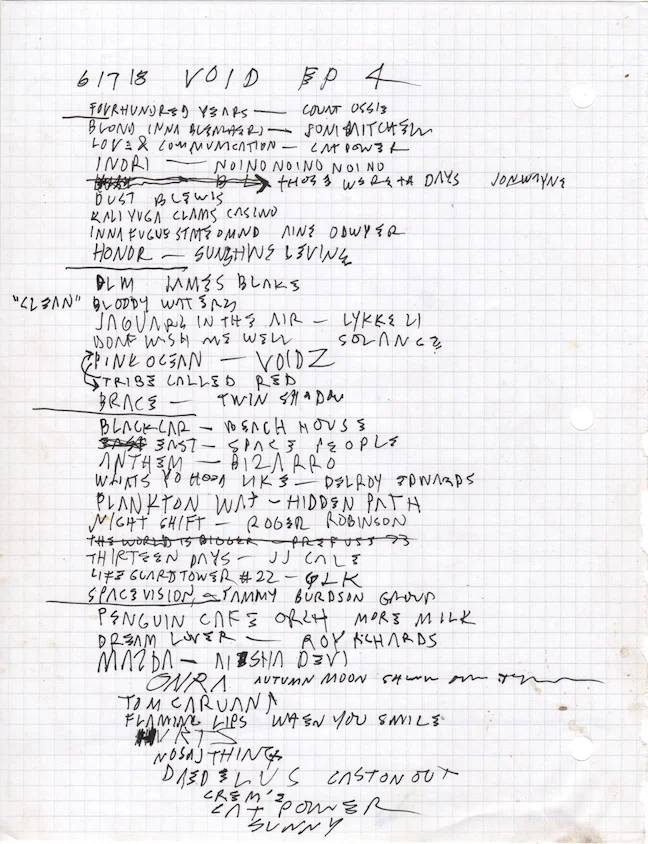 6/7/8 VOID EP 4
FOURHUNDRED YEARS — COUNT OSSIE
BLOND INNA — JONI MITCHELL
LOVE & COMMUNICATION — CAT POWER
INDRI — NOINONOINO NOINO
THOSE WERE THA DAYS JONWAYNE
DUST BLEWIS
KALI YUGA CLAMS CASINO
INNA FUGUE STATE OMND AINE ODWYER
HONOR — SUNSHINE LEVING
DLM JAMES BLAKE
"CLEAN" BLOODY WATERS
JAGUARS IN THE AIR — LYKKE LI
DONT WISH ME WELL SOLANGE
PINK OCEAN — VOIDZ
TRIBE CALLED RED
BRACE — TWIN SHADOW
BLACK CAR — BEACH HOUSE
EAST — SPACE PEOPLE
ANTHEM — BIZARRO
WHATS YO HOOD LIKE — DELROY EDWARDS
PLANKTON WAT — HIDDEN PATH
NIGHT SHIFT — ROGER ROBINSON
THE WORLD IS BIGGER — PREFUSE 73
THIRTEEN DAYS — JJ CALE
LIFE GUARD TOWER #22 — GLK
SPACE VISION, TAMMY BURDSON GROUP
PENGUIN CAFE ORCH MORE MILK
DREAM LOVER — ROY RICHARDS
MAZDA — AISHA DEVI
ONRA AUTUMN MOON
TOM CARUANA
FLAMING LIPS WHEN YOU SMILE
HURTS
NOSAJ THING
DAEDELUS CAST ON OUT
CREM'E
CAT POWER
SUNNY